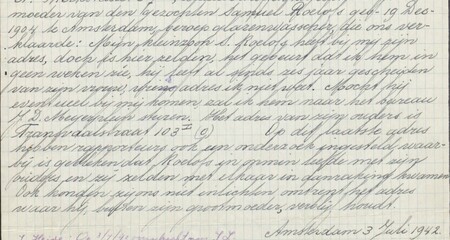 moeder van den gezochten Samuel Roelofs geb. 19 Dec.
1904 te Amsterdam, beroep glazenwasscher, die ons ver-
klaarde: Mijn kleinzoon S. Roelofs heeft bij mij zijn
adres, doch is hier zelden, het gebeurt dat ik hem in
geen weken zie, hij leeft al sinds zes jaar gescheiden
van zijn vrouw, adres ik niet weet. Mocht hij
eventueel bij mij komen zal ik hem naar het bureau
J.D. Meyerplein sturen. Het adres van zijn ouders is
Transvaalstraat 103 II (o) Op dit laatste adres
hebben rapporteurs ook een onderzoek ingesteld, waar-
bij is gebleken dat Roelofs in onmin leefde met zijn
ouders en zij zelden met elkaar in aanraking kwamen.
Ook konden zij ons niet inlichten omtrent het adres
waar hij, buiten zijn grootmoeder, verblijf houdt.
Amsterdam 3 Juli 1942.